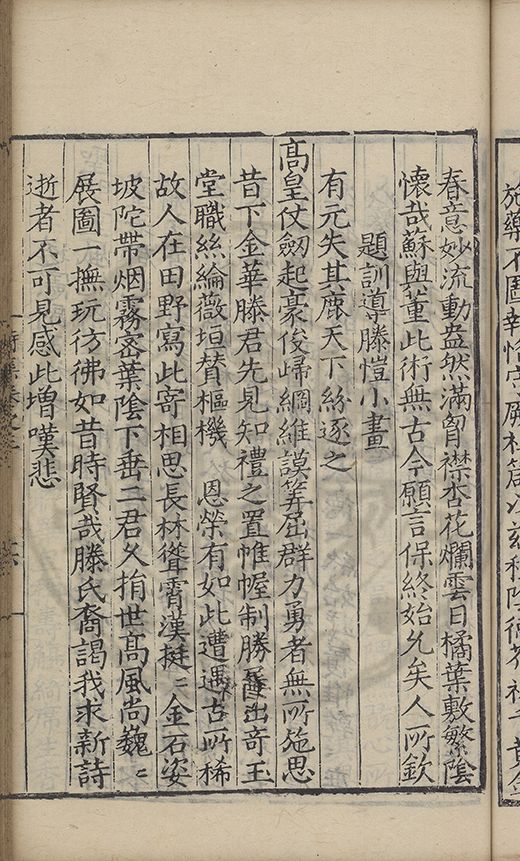 春意妙流動盎然滿胷襟杏花爛雲日橘葉敷繁陰
懷哉蘇與董此術無古今願言保終始允矣人所欽
題訓導滕愷小畫
有元失其鹿天下紛逐之
高皇仗劒起豪俊歸綱維謨筭屈群力勇者無所施思
昔下金華滕君先見知禮之置帷幄制勝屢出奇玉
堂職絲綸薇垣賛樞機 恩榮有如此遭遇古所稀
故人在田野寫此寄相思長林聳霄漢挺〻金石姿
坡陀帶烟霧密葉陰下垂二君久捐世高風尚巍〻
展圖一撫玩彷彿如昔時賢哉滕氏裔謁我求新詩
逝者不可見感此增嘆悲